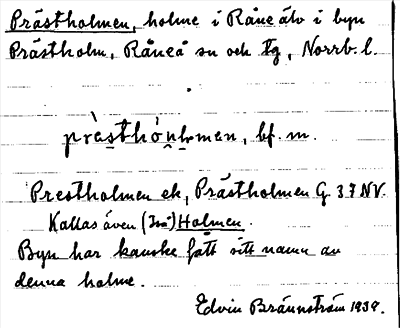 Prästholmen, holme i Råne älv i byn
Prästholm, Råneå sn och tg, Norrb. l.
bf. m.
Prestholmen ek, Prästholmen G 37 NV.
Kallas även Holmen.
Byn har kanske fått sitt namn av
denna holme.
Edvin Brännström 1939.